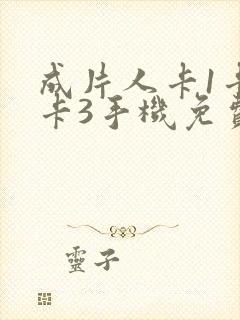 成片人卡1卡
卡3手機免費
靈子